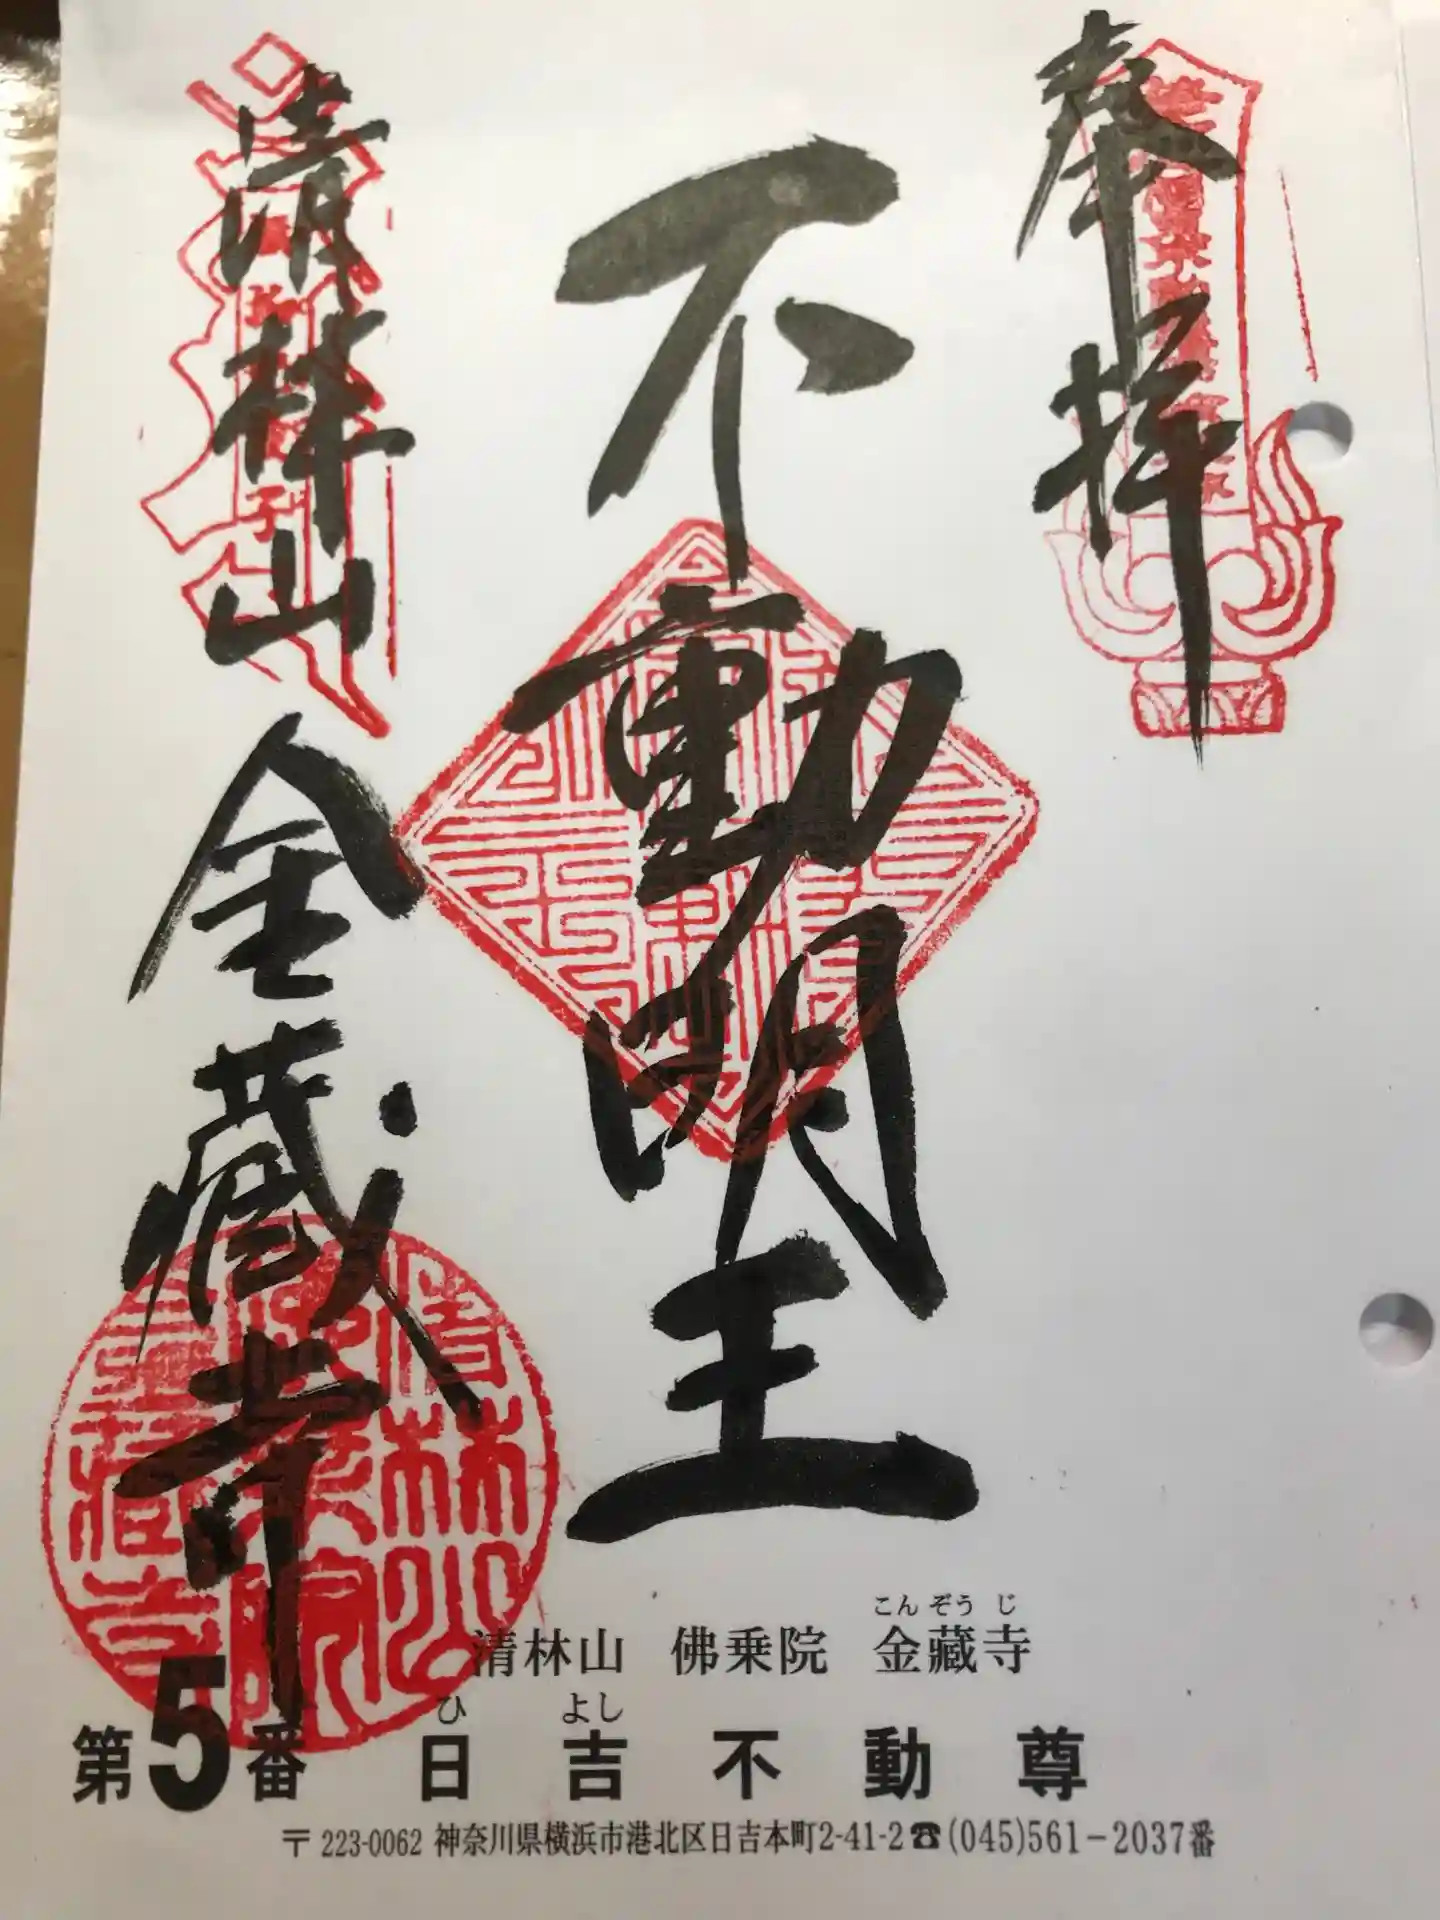 奉拝
不動明王
清林山
金藏寺
こんぞうじ
清林山 佛乗院 金藏寺
ひよし
第5番 日吉不動尊
〒223-0062 神奈川県横浜市港北区日吉本町2-41-2☎(045)561-2037番